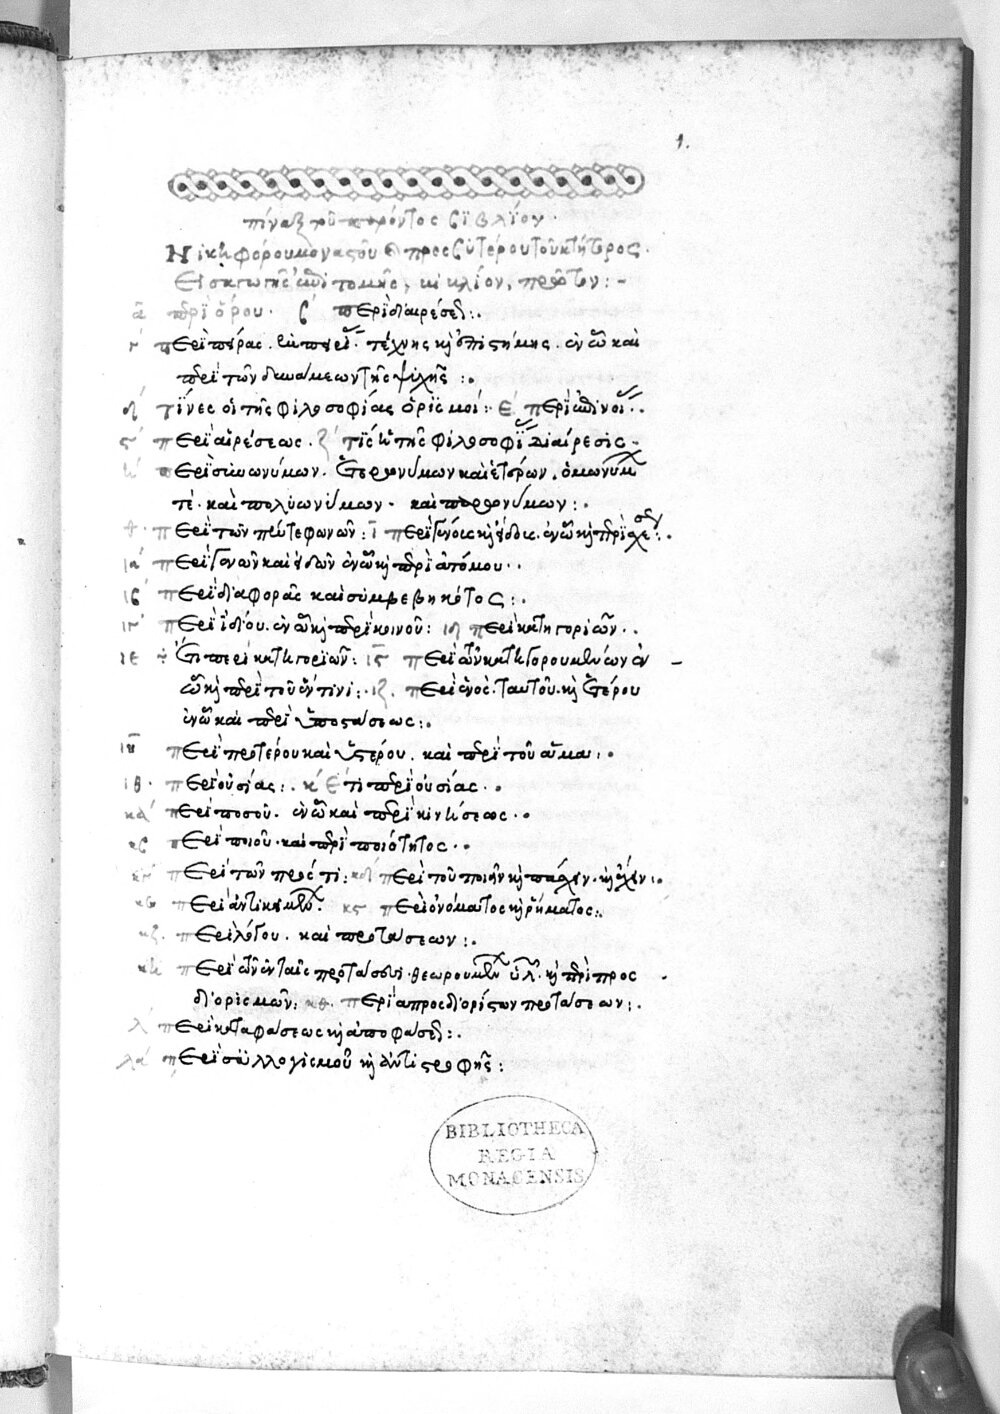 1.
πίναξ τοῦ παρόντος βιβλίου.
Νικηφόρου μοναστοῦ καὶ πρεσβυτέρου τοῦ κτήτορος.
Εἰσαγωγῆς ἐπιτομῆς, βιβλίον, πρῶτον:-
α περὶ ὅρου. β περὶ διαιρέσεως:.
γ περὶ πείρας. ἐμπειρίας. τέχνης καὶ ἐπιστήμης. ἐν ᾧ καὶ
περὶ τῶν δυνάμεων τῆς ψυχῆς:.
δ τίνες οἱ τῆς φιλοσοφίας ὁρισμοί: ε περὶ
ς περὶ αἱρέσεως. ζ τίς ἡ τῆς φιλοσοφίας διαίρεσις-
η περὶ συνωνύμων. ἑτερωνύμων καὶ ἑτέρων. ὁμωνύμων
τέ. καὶ πολυωνύμων. καὶ παρωνύμων:.
θ. περὶ τῶν πέντε φωνῶν: ι περὶ γένους καὶ εἴδους. ἐν ᾧ καὶ περὶ
ια περὶ γενῶν καὶ εἰδῶν ἐν ᾧ καὶ περὶ ἀτόμου..
ιβ περὶ διαφορᾶς καὶ συμβεβηκότος:.
ιγ περὶ ἰδίου. ἐν ᾧ καὶ περὶ κοινοῦ: ιδ περὶ κατηγοριῶν..
ιε Ἔτι περὶ κατηγοριῶν: ις περὶ τῶν κατηγορουμένων ἐν
ᾧ καὶ περὶ τοῦ ἔν τινι:. ιζ. περὶ ἑνός. ταυτοῦ. καὶ ἑτέρου
ἐν ᾧ καὶ περὶ ὑποστάσεως:.
ιη περὶ προτέρου καὶ ὑστέρου. καὶ περὶ τοῦ ἅμα:.
ιθ. περὶ οὐσίας:. κ Ἔτι περὶ οὐσίας..
κα περὶ ποσοῦ. ἐν ᾧ καὶ περὶ κινήσεως..
κβ περὶ ποιοῦ. καὶ περὶ ποιότητος..
κγ περὶ τῶν πρός τι: κδ περὶ τοῦ ποιεῖν καὶ πάσχειν. καὶ ἔχειν:.
κε περὶ ἀντικειμένων. κς περὶ ὀνόματος καὶ ῥήματος:.
κζ. περὶ λόγου. καὶ προτάσεων:.
κη περὶ τῶν ἐν ταῖς προτάσεσι θεωρουμένων ὑλῶν. καὶ περὶ προσ
διορισμῶν: κθ. περὶ ἀπροσδιορίστων προτάσεων:.
λ περὶ καταφάσεως καὶ ἀποφάσεως:.
λα περὶ συλλογισμοῦ καὶ ἀντιστροφῆς:
BIBLIOTHECA
REGIA
MONACENSIS